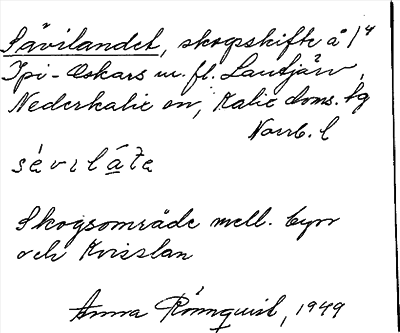 Sävilandet, skogsskifte å 1⁴
Ipi-Oskars m. fl. Lantjärv,
Nederkalix sn, Kalix doms. tg
Norrb. l
sé v ı l á t e
Skogsområde mell. byn
och Kvisslan
Anna Rönnquist, 1949